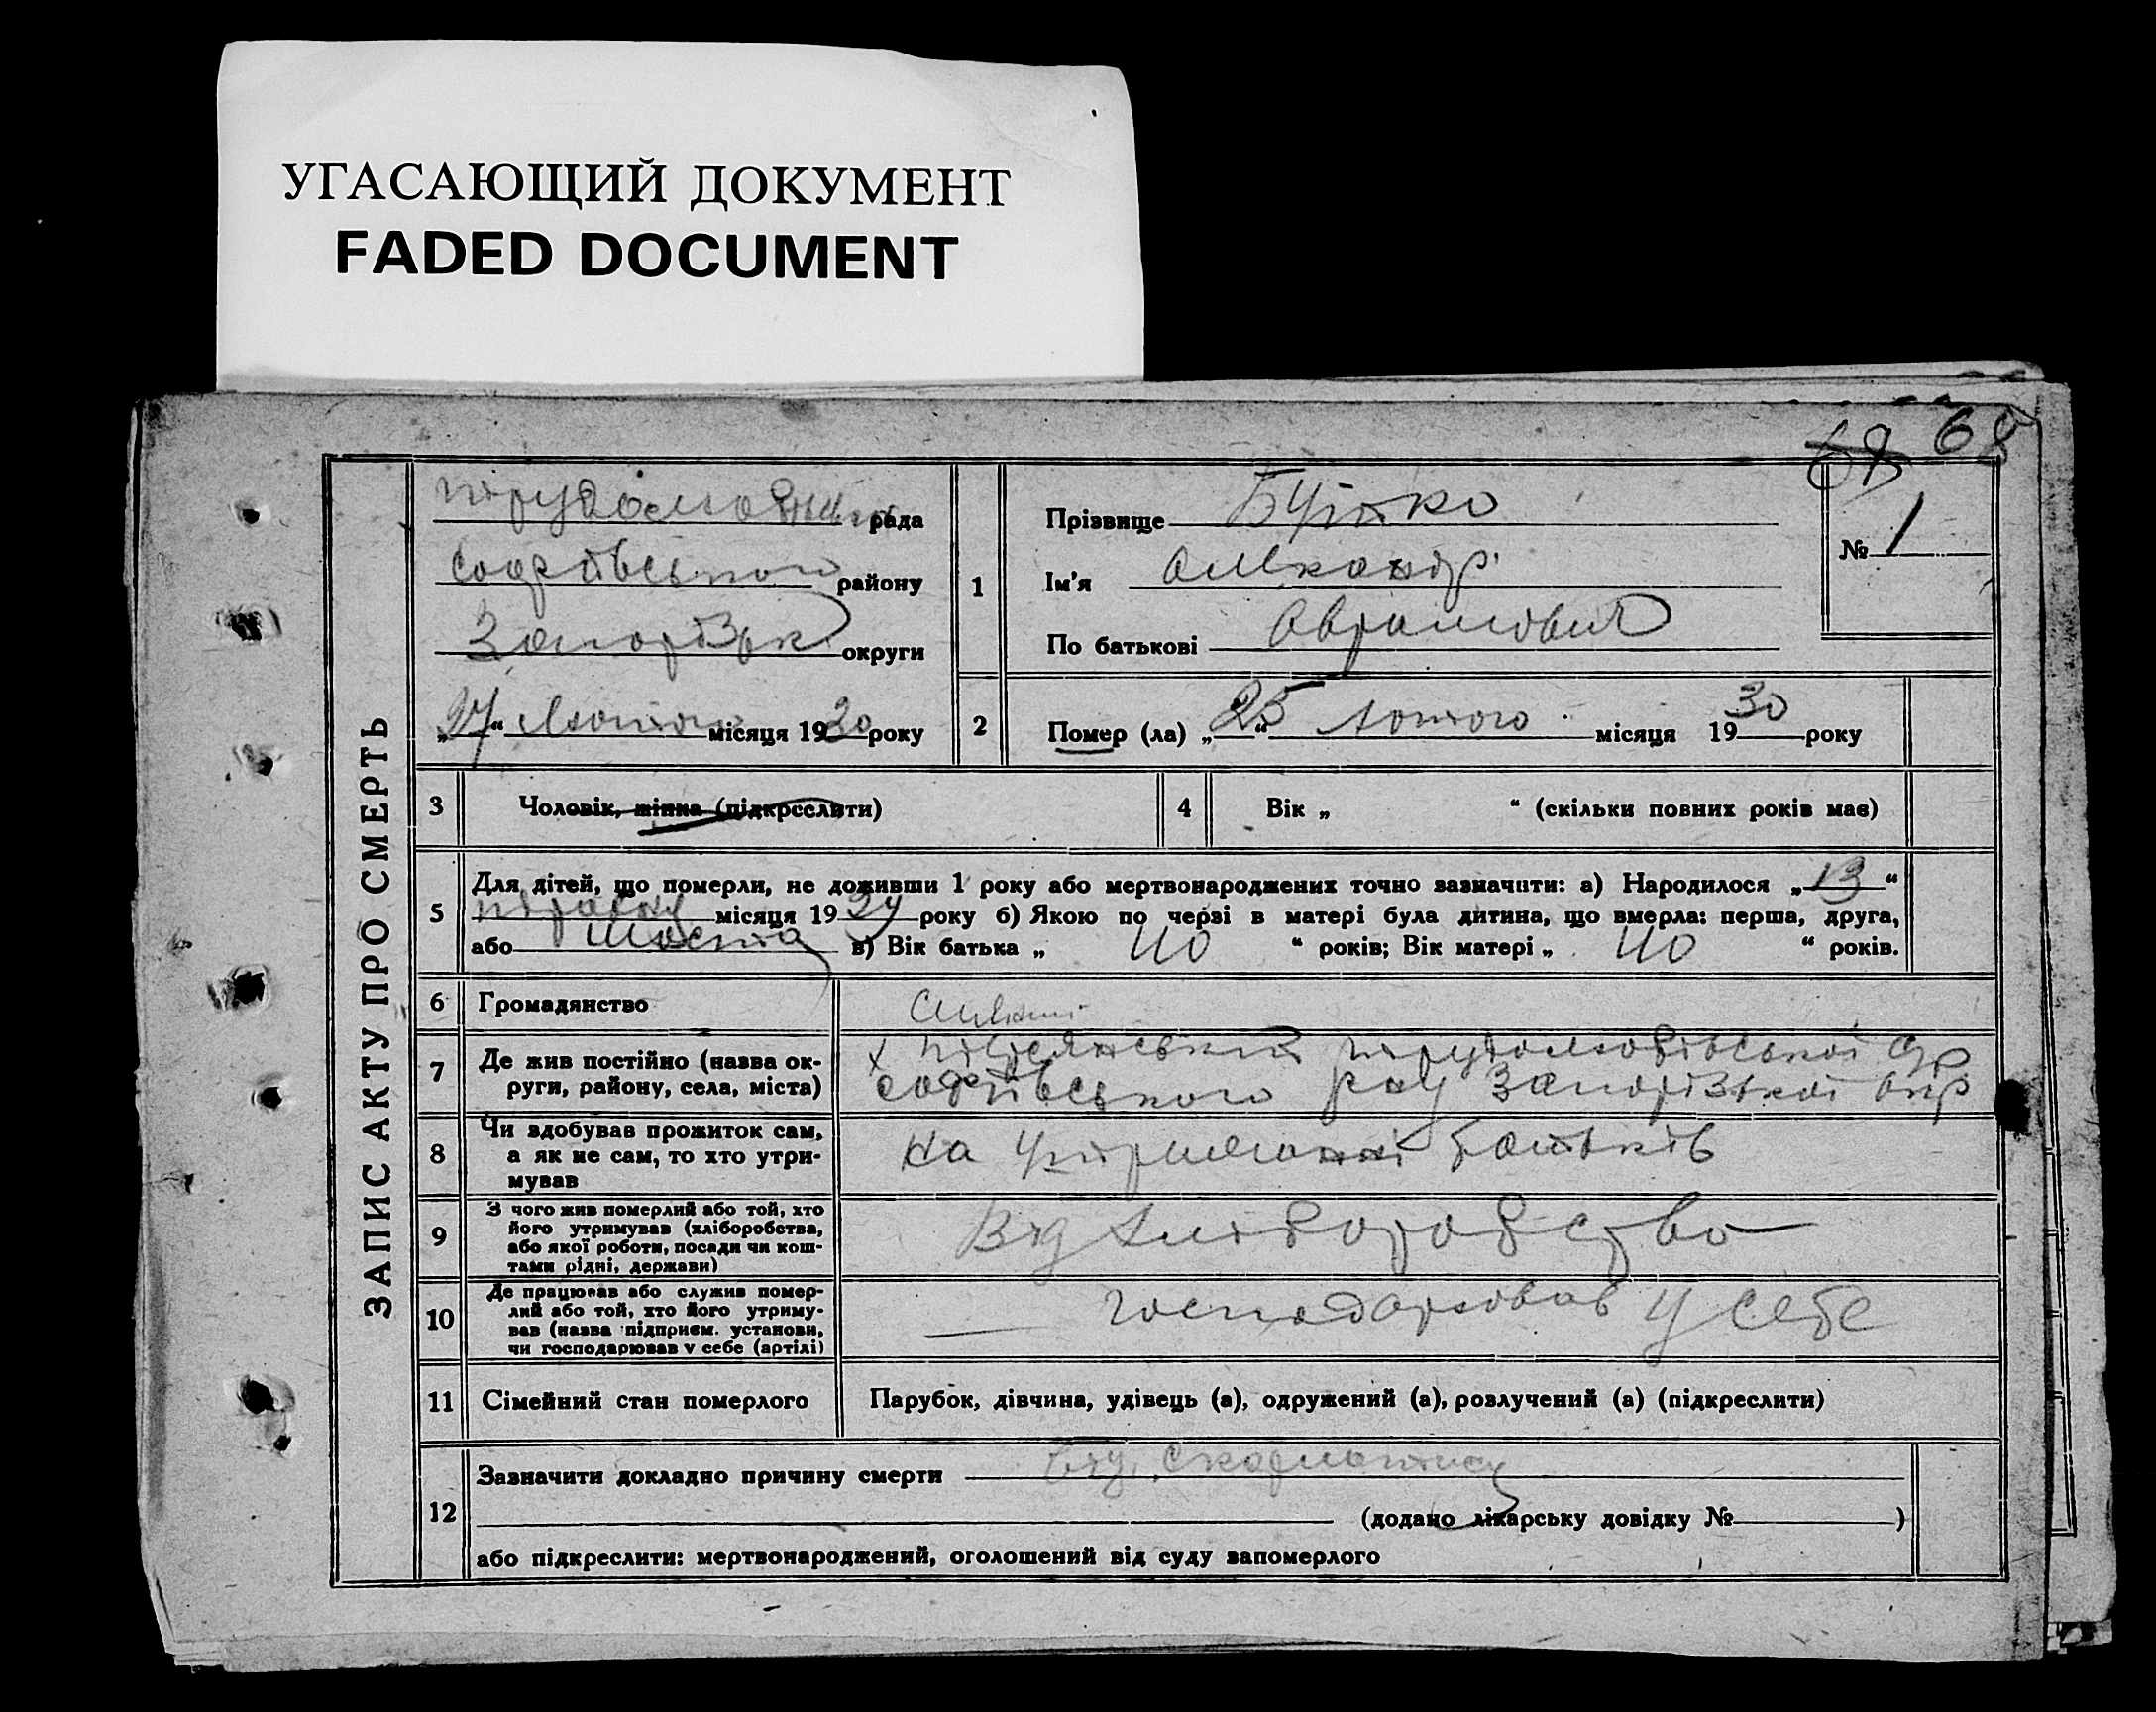 УГАСАЮЩИЙ ДОКУМЕНТ
FADED DOCUMENT
68 68
ЗАПИС АКТУ ПРО СМЕРТЬ
рада
Софіївського району
Запорізьк. округи
„27“ Лютого місяця 1930 року
1
Прізвище Бутко
Ім'я Олександр
По батькові Аврамович
№ 1
2 Помер (ла) „25“ лютого місяця 1930 року
3 Чоловік, жінка (підкреслити)
4 Вік „ “ (скільки повних років має)
5 Для дітей, що померли, не доживши 1 року або мертвонароджених точно зазначити: а) Народилося „13“
травня місяця 1929 року б) Якою по черзі в матері була дитина, що вмерла: перша, друга,
або шоста в) Вік батька „ 40 “ років; Вік матері „ 40 “ років.
6 Громадянство
7 Де жив постійно (назва округи, району, села, міста)
х Трудолюбівської с/р
Софіївського рай Запорізької окр
8 Чи здобував прожиток сам, а як не сам, то хто утримував
На утриманні батьків
9 З чого жив померлий або той, хто його утримував (хліборобства, або якої роботи, посади чи коштами рідні, держави)
Від хліборобство
10 Де працював або служив померлий або той, хто його утримував (назва підприєм. установи, чи господарював у себе (артілі)
— господарював у себе
11 Сімейний стан померлого
Парубок, дівчина, удівець (а), одружений (а), розлучений (а) (підкреслити)
12 Зазначити докладно причину смерти від скарлатини
(додано лікарську довідку № )
або підкреслити: мертвонароджений, оголошений від суду запомерлого